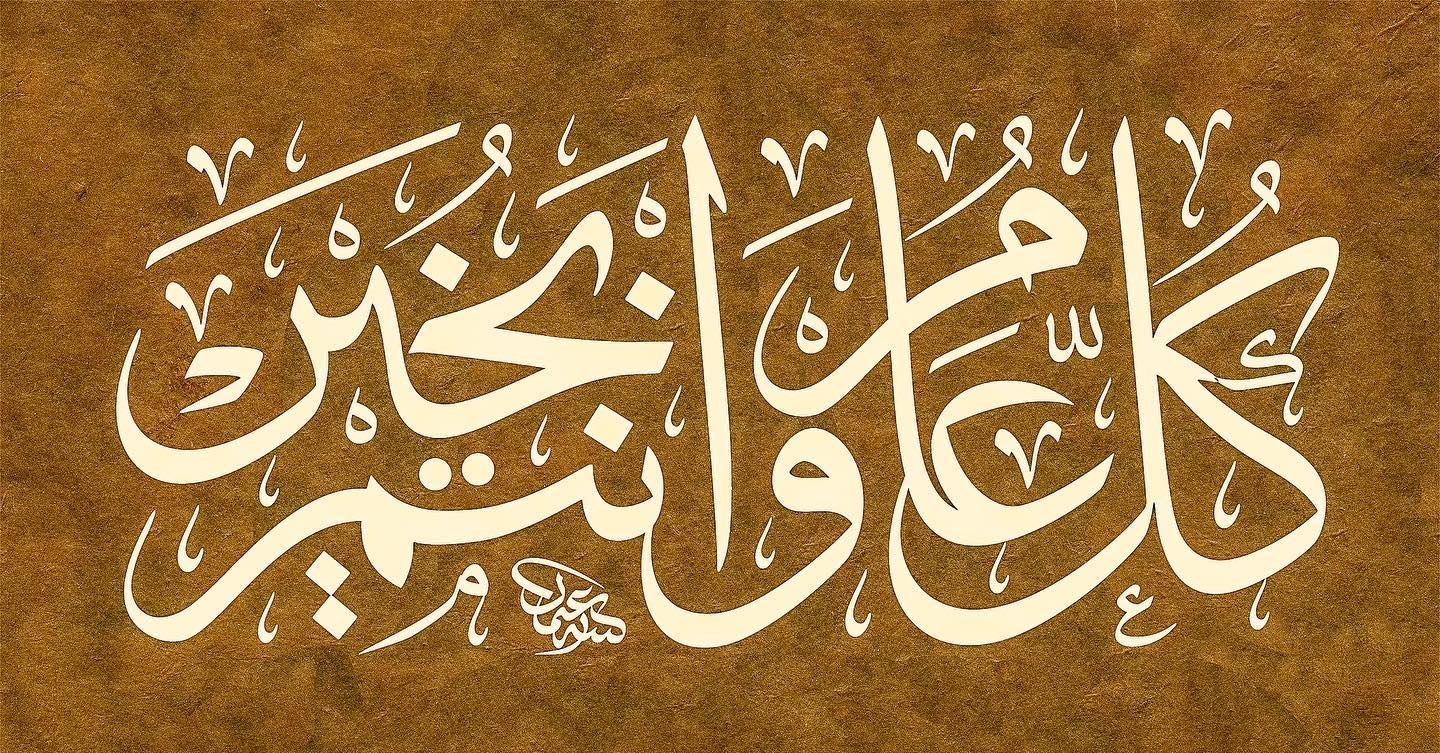 كُلُّ عَامٍ وَانتم بَخُيْرٍ